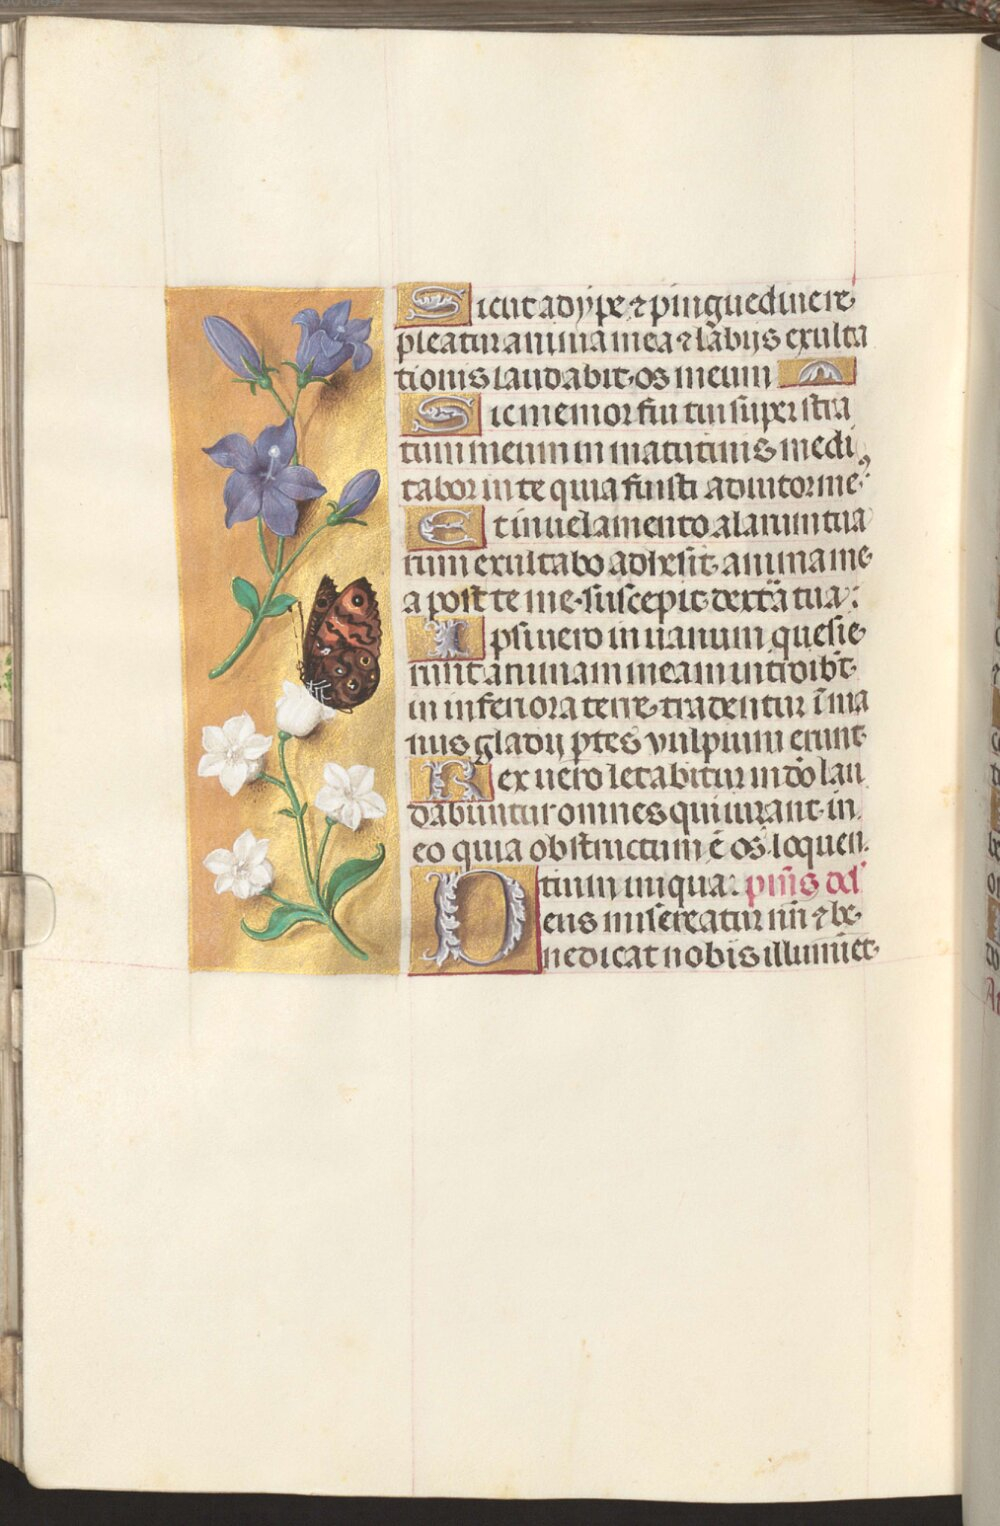 Sicut adipe ⁊ pinguedine re
pleatur anima mea ⁊ labijs exulta
tionis laudabit os meum
Sic memor fui tui super stra
tum meum in matutinis medi
tabor in te quia fuisti adiutor me⁹
Et in velamento alarum tua
rum exultabo adhesit anima me
a post te me suscepit dextã tua:
Ipsi vero in vanum quesie
runt animam meam introibt̃
in inferiora terre tradentur ĩ ma
nus gladij ptes vulpium erunt
Rex vero letabitur in dõ lau
dabuntur omnes qui iurant in
eo quia obstructum ẽ os loquen
tium iniqua. psm̃s
Deus misereatur nr̃i ⁊ be
nedicat nobis illuminet